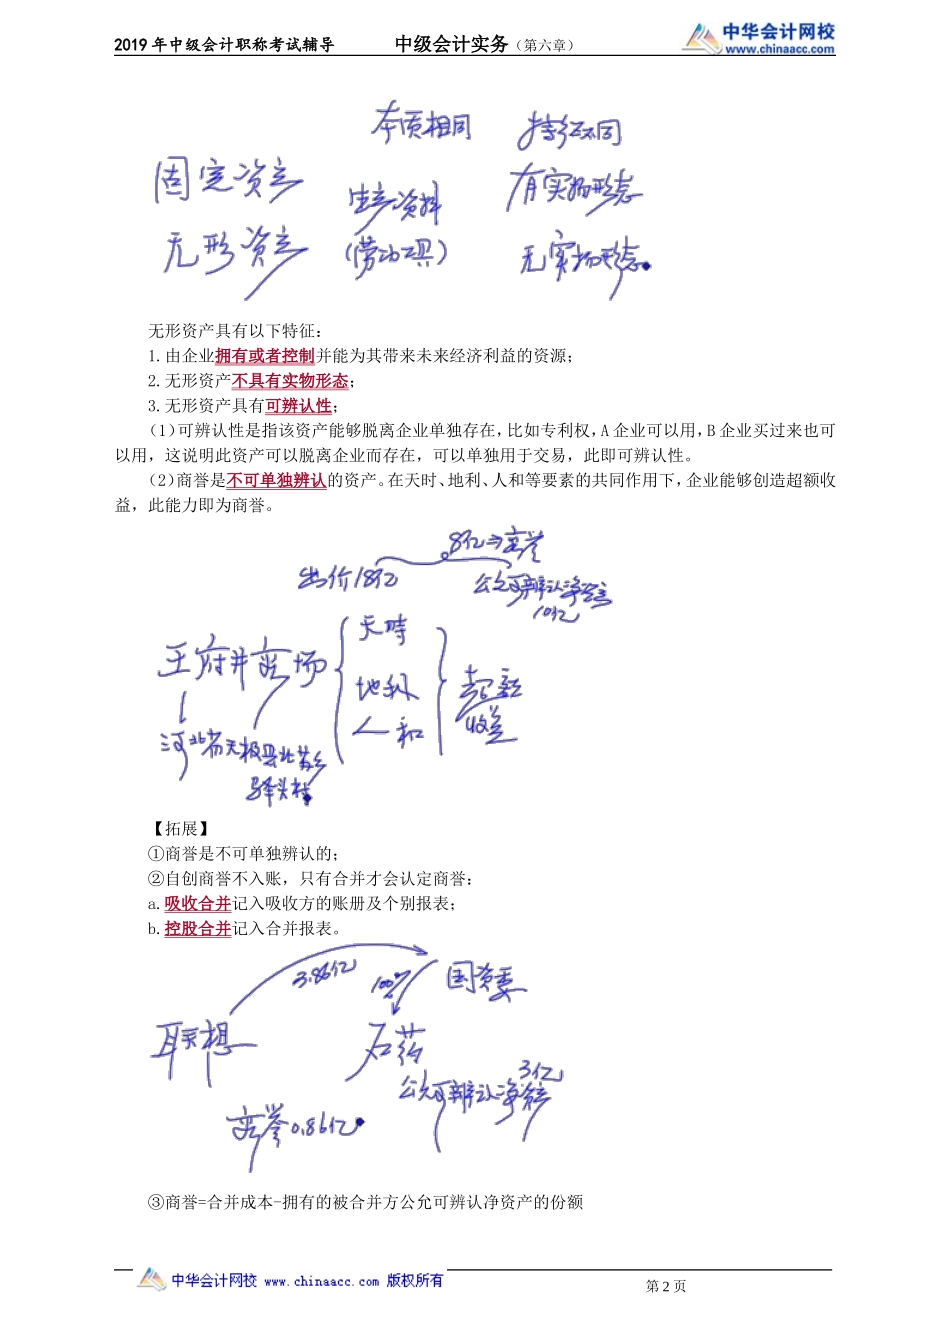 2019 年中级会计职称考试辅导 中级会计实务（第六章） 中华会计网校
www.chinaacc.com
本质相同 特征不同
固定资产 生产资料 有实物形态
无形资产 (劳动工具) 无实物形态
无形资产具有以下特征：
1.由企业拥有或者控制并能为其带来未来经济利益的资源；
2.无形资产不具有实物形态；
3.无形资产具有可辨认性；
（1）可辨认性是指该资产能够脱离企业单独存在，比如专利权，A 企业可以用，B 企业买过来也可
以用，这说明此资产可以脱离企业而存在，可以单独用于交易，此即可辨认性。
（2）商誉是不可单独辨认的资产。在天时、地利、人和等要素的共同作用下，企业能够创造超额收
益，此能力即为商誉。
8亿⇒商誉
出价18亿 公允可辨认净资产
10亿
王府井商场 天时
地利 超额
人和 收益
河北省无极县北苏乡
驿头村
【拓展】
①商誉是不可单独辨认的；
②自创商誉不入账，只有合并才会认定商誉：
a.吸收合并记入吸收方的账册及个别报表；
b.控股合并记入合并报表。
3.86亿 100% 国资委
联想 石药
3亿
公允可辨认净资产
商誉0.86亿
③商誉=合并成本-拥有的被合并方公允可辨认净资产的份额
中华会计网校 www.chinaacc.com 版权所有
第 2 页